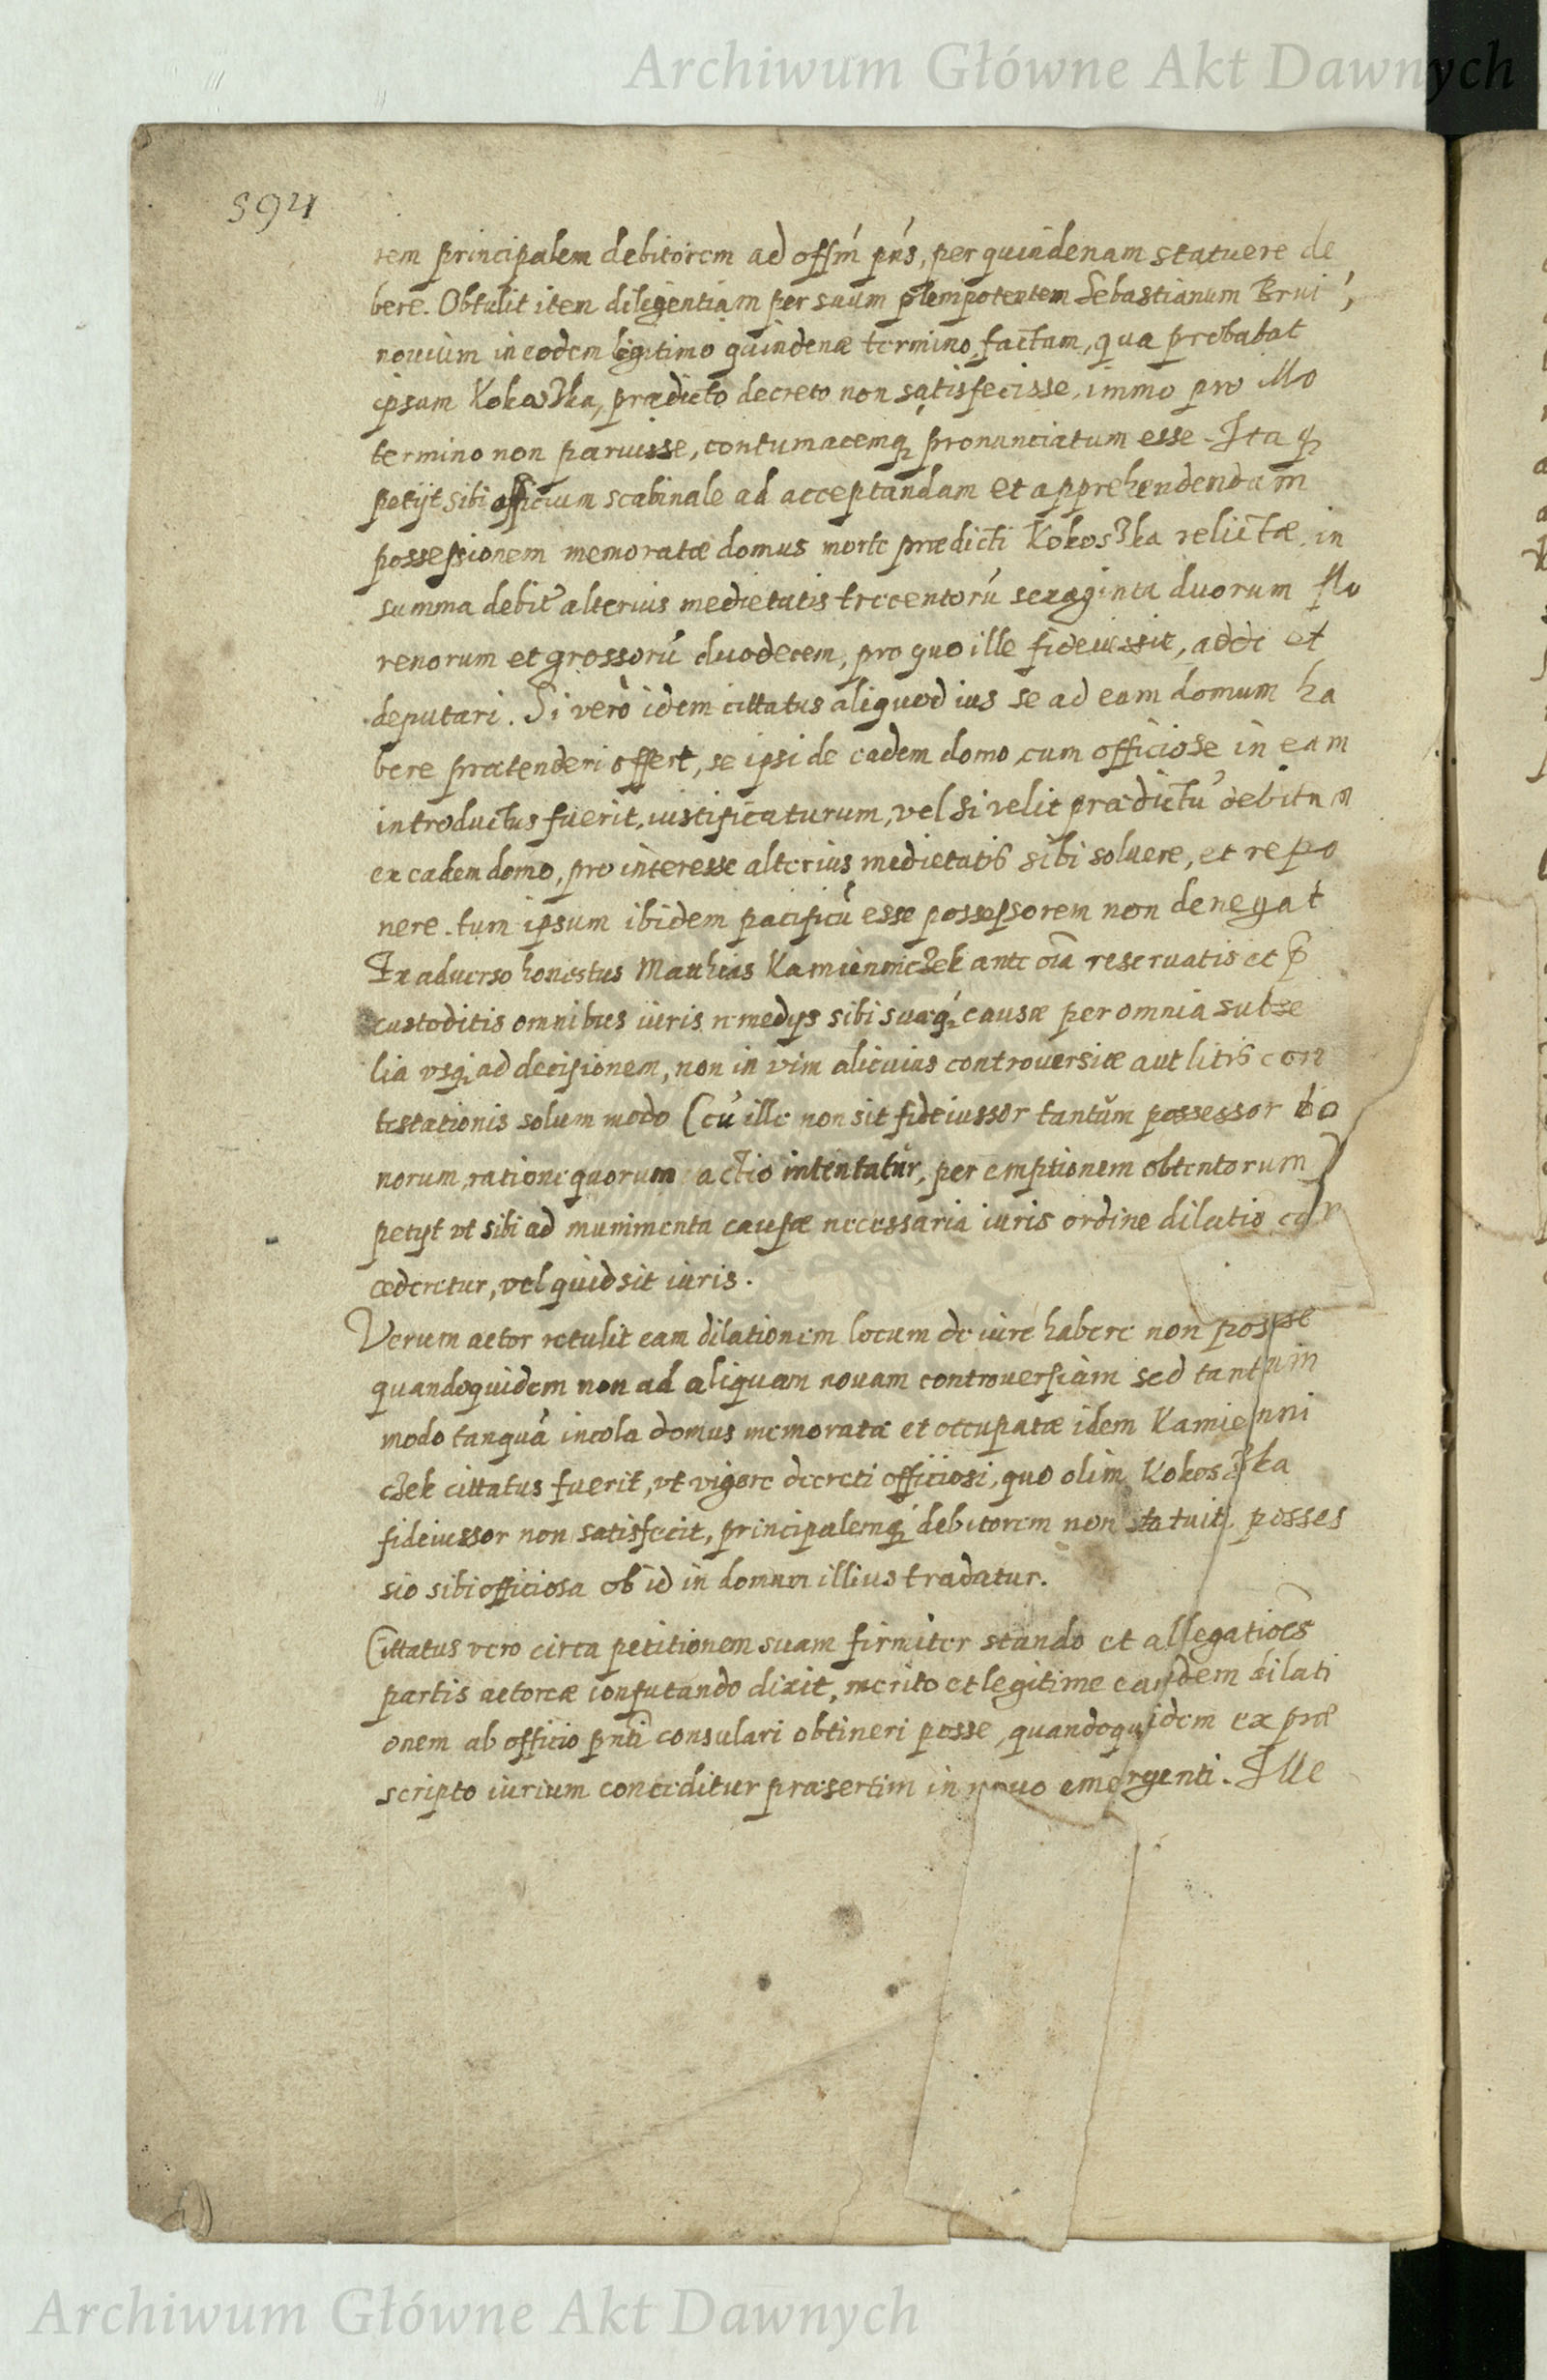 Archiwum Główne Akt Dawnych
594
rem principalem debitorem ad offm̃ pñs, per quindenam statuere de
bere. Obtulit item diligentiam per suum plenipotentem Sebastianum Brui
nouium in eodem legitimo quindenæ termino, factam, qua probabat
ipsum Kokoszka, prædicto decreto non satisfecisse, immo pro illo
termino non paruisse, contumacemq; pronunciatum esse. Ita q;
petijt sibi officium scabinale ad acceptandam et apprehendendam
possessionem memoratæ domus morte prædicti Kokoszka relictæ, in
summa debiti alterius medietatis trecentorũ sexaginta duorum flo
renorum et grossorũ duodecem, pro quo ille fideiussit, addi et
deputari. Si verò idem cittatus aliquod ius se ad eam domum ha
bere prætenderi offert, se ipsi de eadem domo, cum officiose in eam
introductus fuerit, iustificaturum, vel si velit prædictũ debitum
ex eadem domo, pro interesse alterius medietatis sibi soluere, et repo
nere. tum ipsum ibidem pacificũ esse possessorem non denegat
Ex aduerso honestus Mathias Kamienniczek ante oĩa reseruatis et p̃
custoditis omnibus iuris remedijs sibi suæq; causæ per omnia subse
lia vsq; ad decisionem, non in vim alicuius controuersiæ aut litis con
testationis solum modo (cũ ille non sit fideiussor tantũm possessor bo
norum, ratione quorum actio intentatur, per emptionem obtentorum)
petijt vt sibi ad munimenta causæ necessaria iuris ordine dilatio con
cederetur, vel quid sit iuris.
Verum actor retulit eam dilationem locum de iure habere non posse
quandoquidem non ad aliquam nouam controuersiam sed tantum
modo tanquã incola domus memoratæ et occupatæ idem Kamienni
czek cittatus fuerit, vt vigore decreti officiosi, quo olim Kokoszka
fideiussor non satisfecit, principalemq; debitorem non statuit, posses
sio sibi officiosa ob id in domum illius tradatur.
Cittatus vero circa petitionem suam firmiter stando et allegatioẽs
partis actoreæ confutando dixit, merito et legitime eandem dilati
onem ab officio pñti consulari obtineri posse, quandoquidem ex præ
scripto iurium conceditur præsertim in nouo emergenti. Ille
Archiwum Główne Akt Dawnych